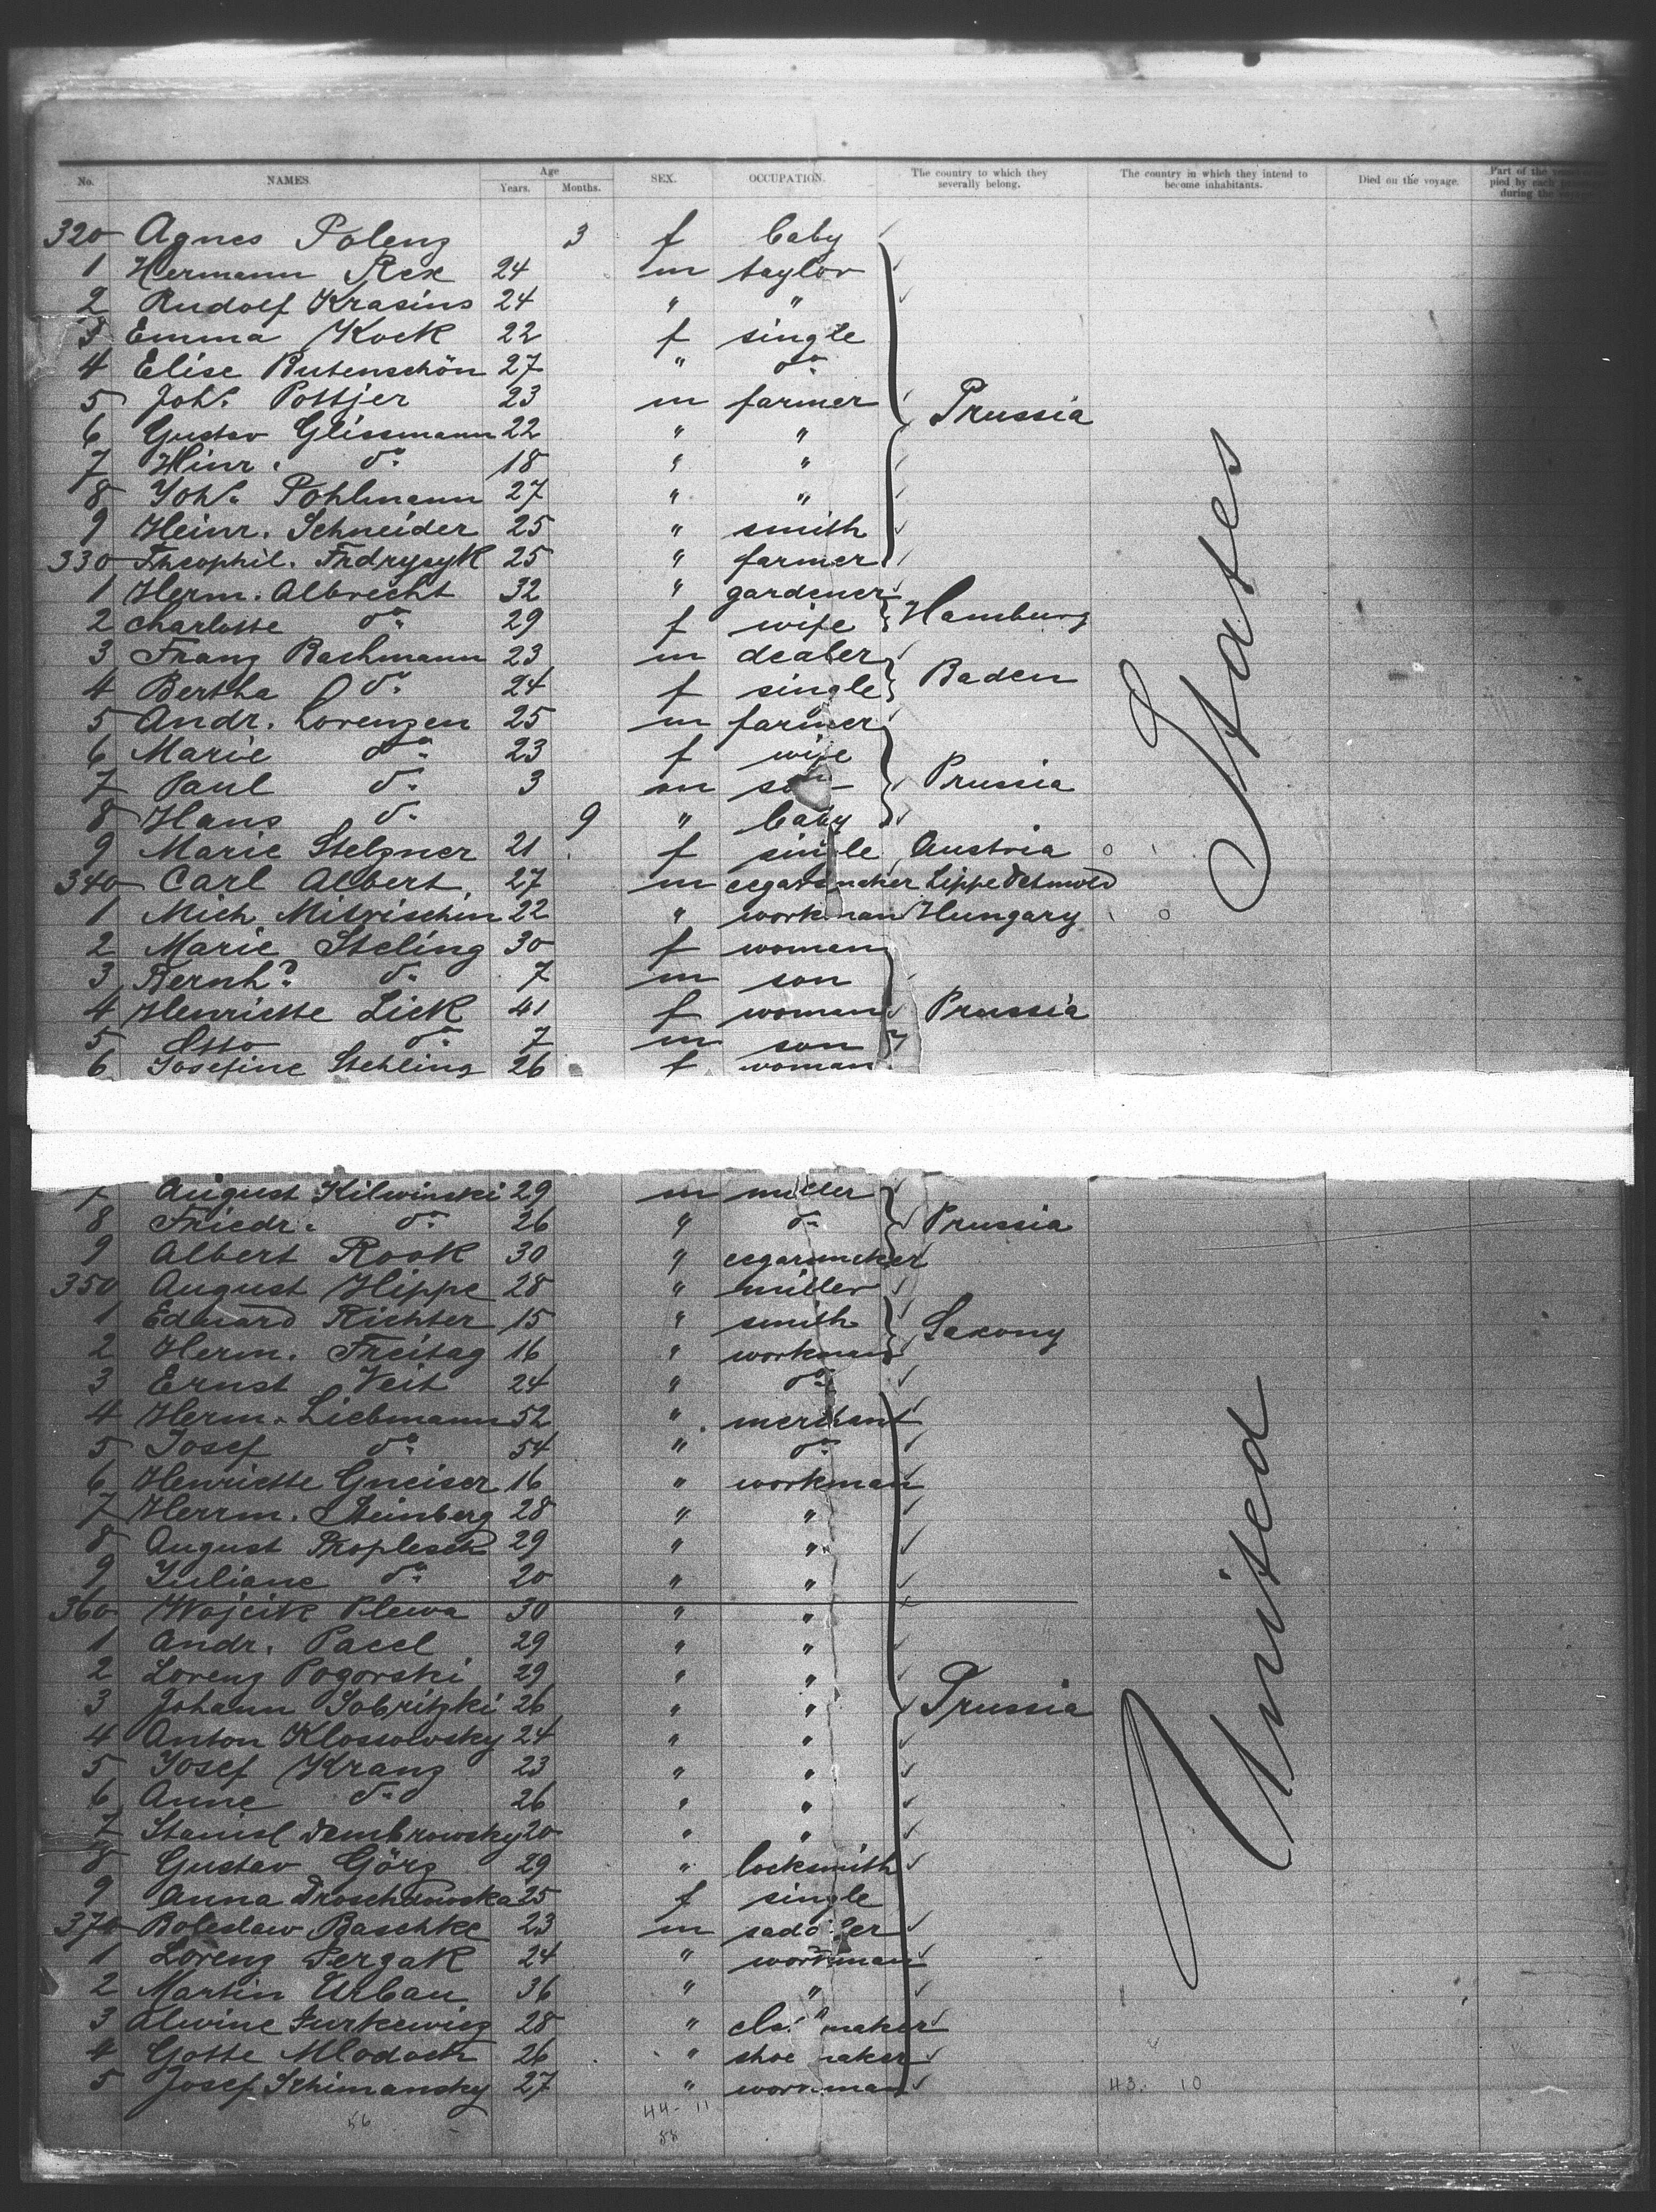 No. NAMES. Age Years. Months. SEX. OCCUPATION. The country to which they severally belong. The country in which they intend to become inhabitants. Died on the voyage. Part of the
320 Agnes Polenz 3 f baby
1 Hermann Rex 24 m taylor
2 Rudolf Krasins 24 " "
3 Emma Kock 22 f single
4 Elise Butenschön 27 " do.
5 Joh. Pottjer 23 m farmer Prussia
6 Gustav Glissmann 22 " "
7 Hinr. do. 18 " "
8 Joh. Pohlmann 27 " "
9 Heinr. Schneider 25 " smith
330 Theophil. 25 " farmer
1 Herm. Albrecht 32 " gardener
2 Charlotte do. 29 f wife Hamburg
3 Franz Bachmann 23 m dealer
4 Bertha do. 24 f single Baden
5 Andr. Lorenzen 25 m farmer
6 Marie do. 23 f wife
7 Paul do. 3 m son Prussia
8 Hans do. 9 " baby
9 Marie Stelzner 21 f single Austria
340 Carl Albert 27 m cegarmcker Lippe Detmold
1 Mich. Mitrischin 22 " workman Hungary
2 Marie Steling 30 f woman
3 Bernhd. do. 7 m son
4 Henriette Lick 41 f woman Prussia
5 Otto do. 7 m son
6 Josefine Stehling 26 f woman
States
7 August Kilwinski 29 m miller
8 Friedr. do. 26 " do. Prussia
9 Albert Rook 30 " cegarmcker
350 August Hippe 28 " miller
1 Eduard Richter 15 " smith Saxony
2 Herm. Freitag 16 " workman
3 Ernst Veit 24 " do.
4 Herm. Liebmann 52 " merchant
5 Josef do. 54 " do.
6 Henriette Gneiser 16 " workman
7 Herrm. Steinberg 28 " "
8 August 29 " "
9 Juliane do. 20 " "
360 Wojcik Plewa 30 " "
1 Andr. Pacel 29 " "
2 Lorenz Pogorski 29 " "
3 Johann Sobritzki 26 " " Prussia
4 Anton Klossowsky 24 " "
5 Josef Kranz 23 " "
6 Anne do. 26 " "
7 Stanisl Dembrowsky 20 " "
8 Gustav Görz 29 " locksmith
9 Anna Droschdowska 25 f single
370 Boleslaw Baschke 23 m saddler
1 Lorenz Sergak 24 " workman
2 Martin Urban 36 " "
3 Alwine Jurkewicz 28 " maker
4 Gotte Mlodoch 26 " shoemaker
5 Josef Schimansky 27 " workman
United
56 44-11 43. 10
88